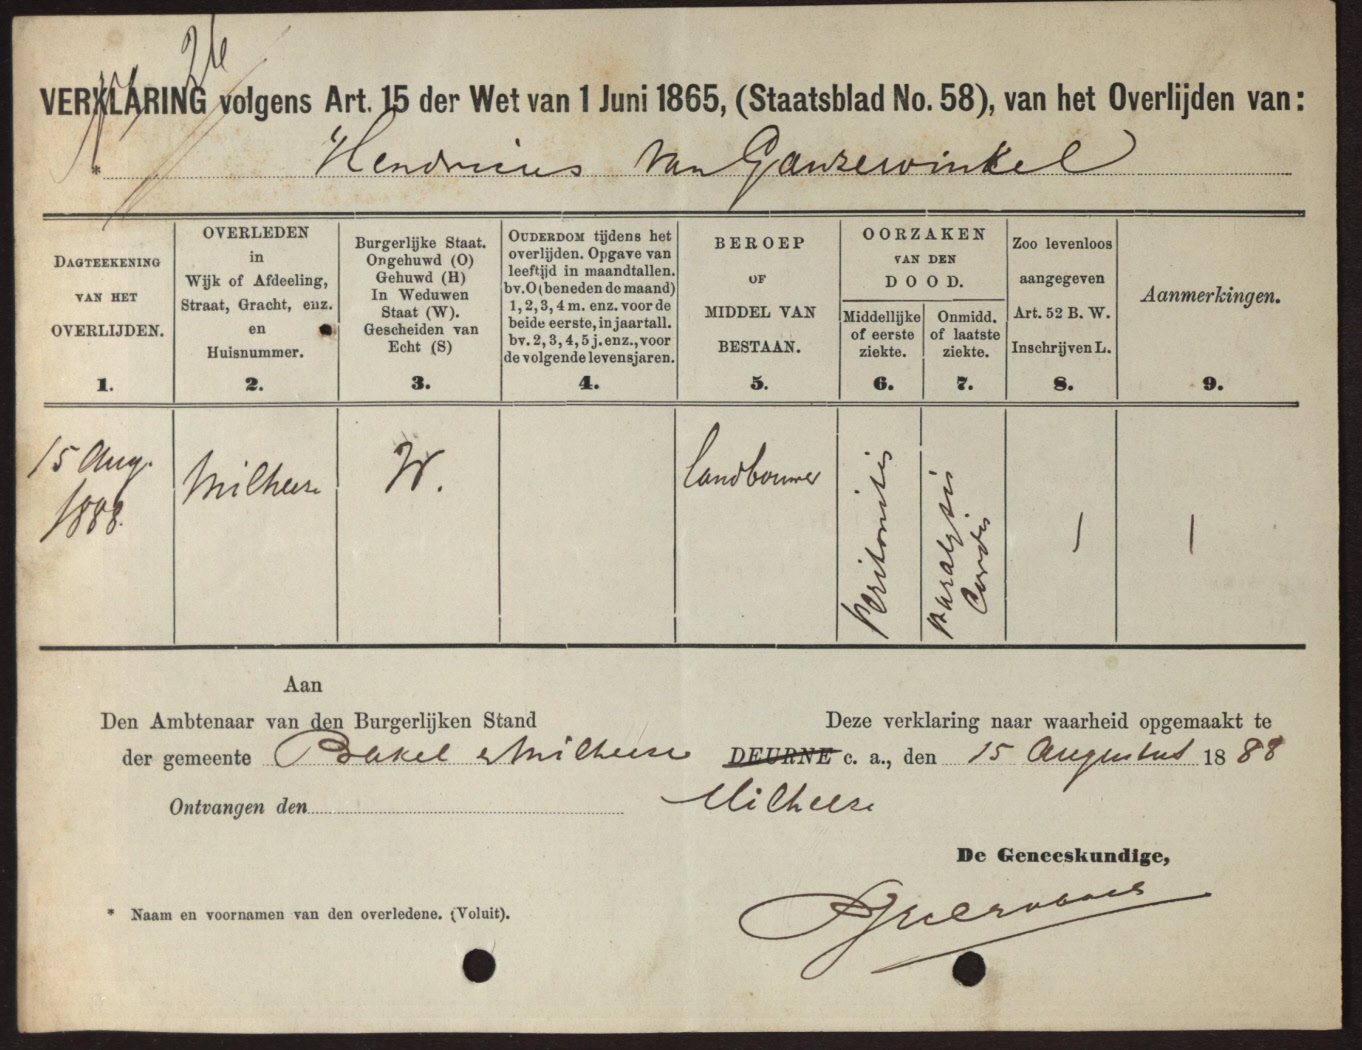 VERKLARING volgens Art. 15 der Wet van 1 Juni 1865, (Staatsblad No. 58), van het Overlijden van:
* Hendricus van Ganzewinkel
DAGTEEKENING
VAN HET
OVERLIJDEN.
1.
OVERLEDEN
in
Wijk of Afdeeling,
Straat, Gracht, enz.
en
Huisnummer.
2.
Burgerlijke Staat.
Ongehuwd (O)
Gehuwd (H)
In Weduwen
Staat (W).
Gescheiden van
Echt (S)
3.
OUDERDOM tijdens het
overlijden. Opgave van
leeftijd in maandtallen.
bv. O (beneden de maand)
1, 2, 3, 4 m. enz. voor de
beide eerste, in jaartall.
bv. 2, 3, 4, 5 j. enz., voor
de volgende levensjaren.
4.
BEROEP
OF
MIDDEL VAN
BESTAAN.
5.
OORZAKEN
VAN DEN
DOOD.
Middellijke
of eerste
ziekte.
6.
Onmidd.
of laatste
ziekte.
7.
Zoo levenloos
aangegeven
Art. 52 B. W.
Inschrijven L.
8.
Aanmerkingen.
9.
15 Aug.
1888.
Milheeze
W.
landbouwer
peritonitis
paralysis
cordis
Aan
Den Ambtenaar van den Burgerlijken Stand
der gemeente Bakel Milheeze
Ontvangen den
Deze verklaring naar waarheid opgemaakt te
DEURNE c. a., den 15 Augustus 1888
Milheeze
De Geneeskundige,
* Naam en voornamen van den overledene. (Voluit).